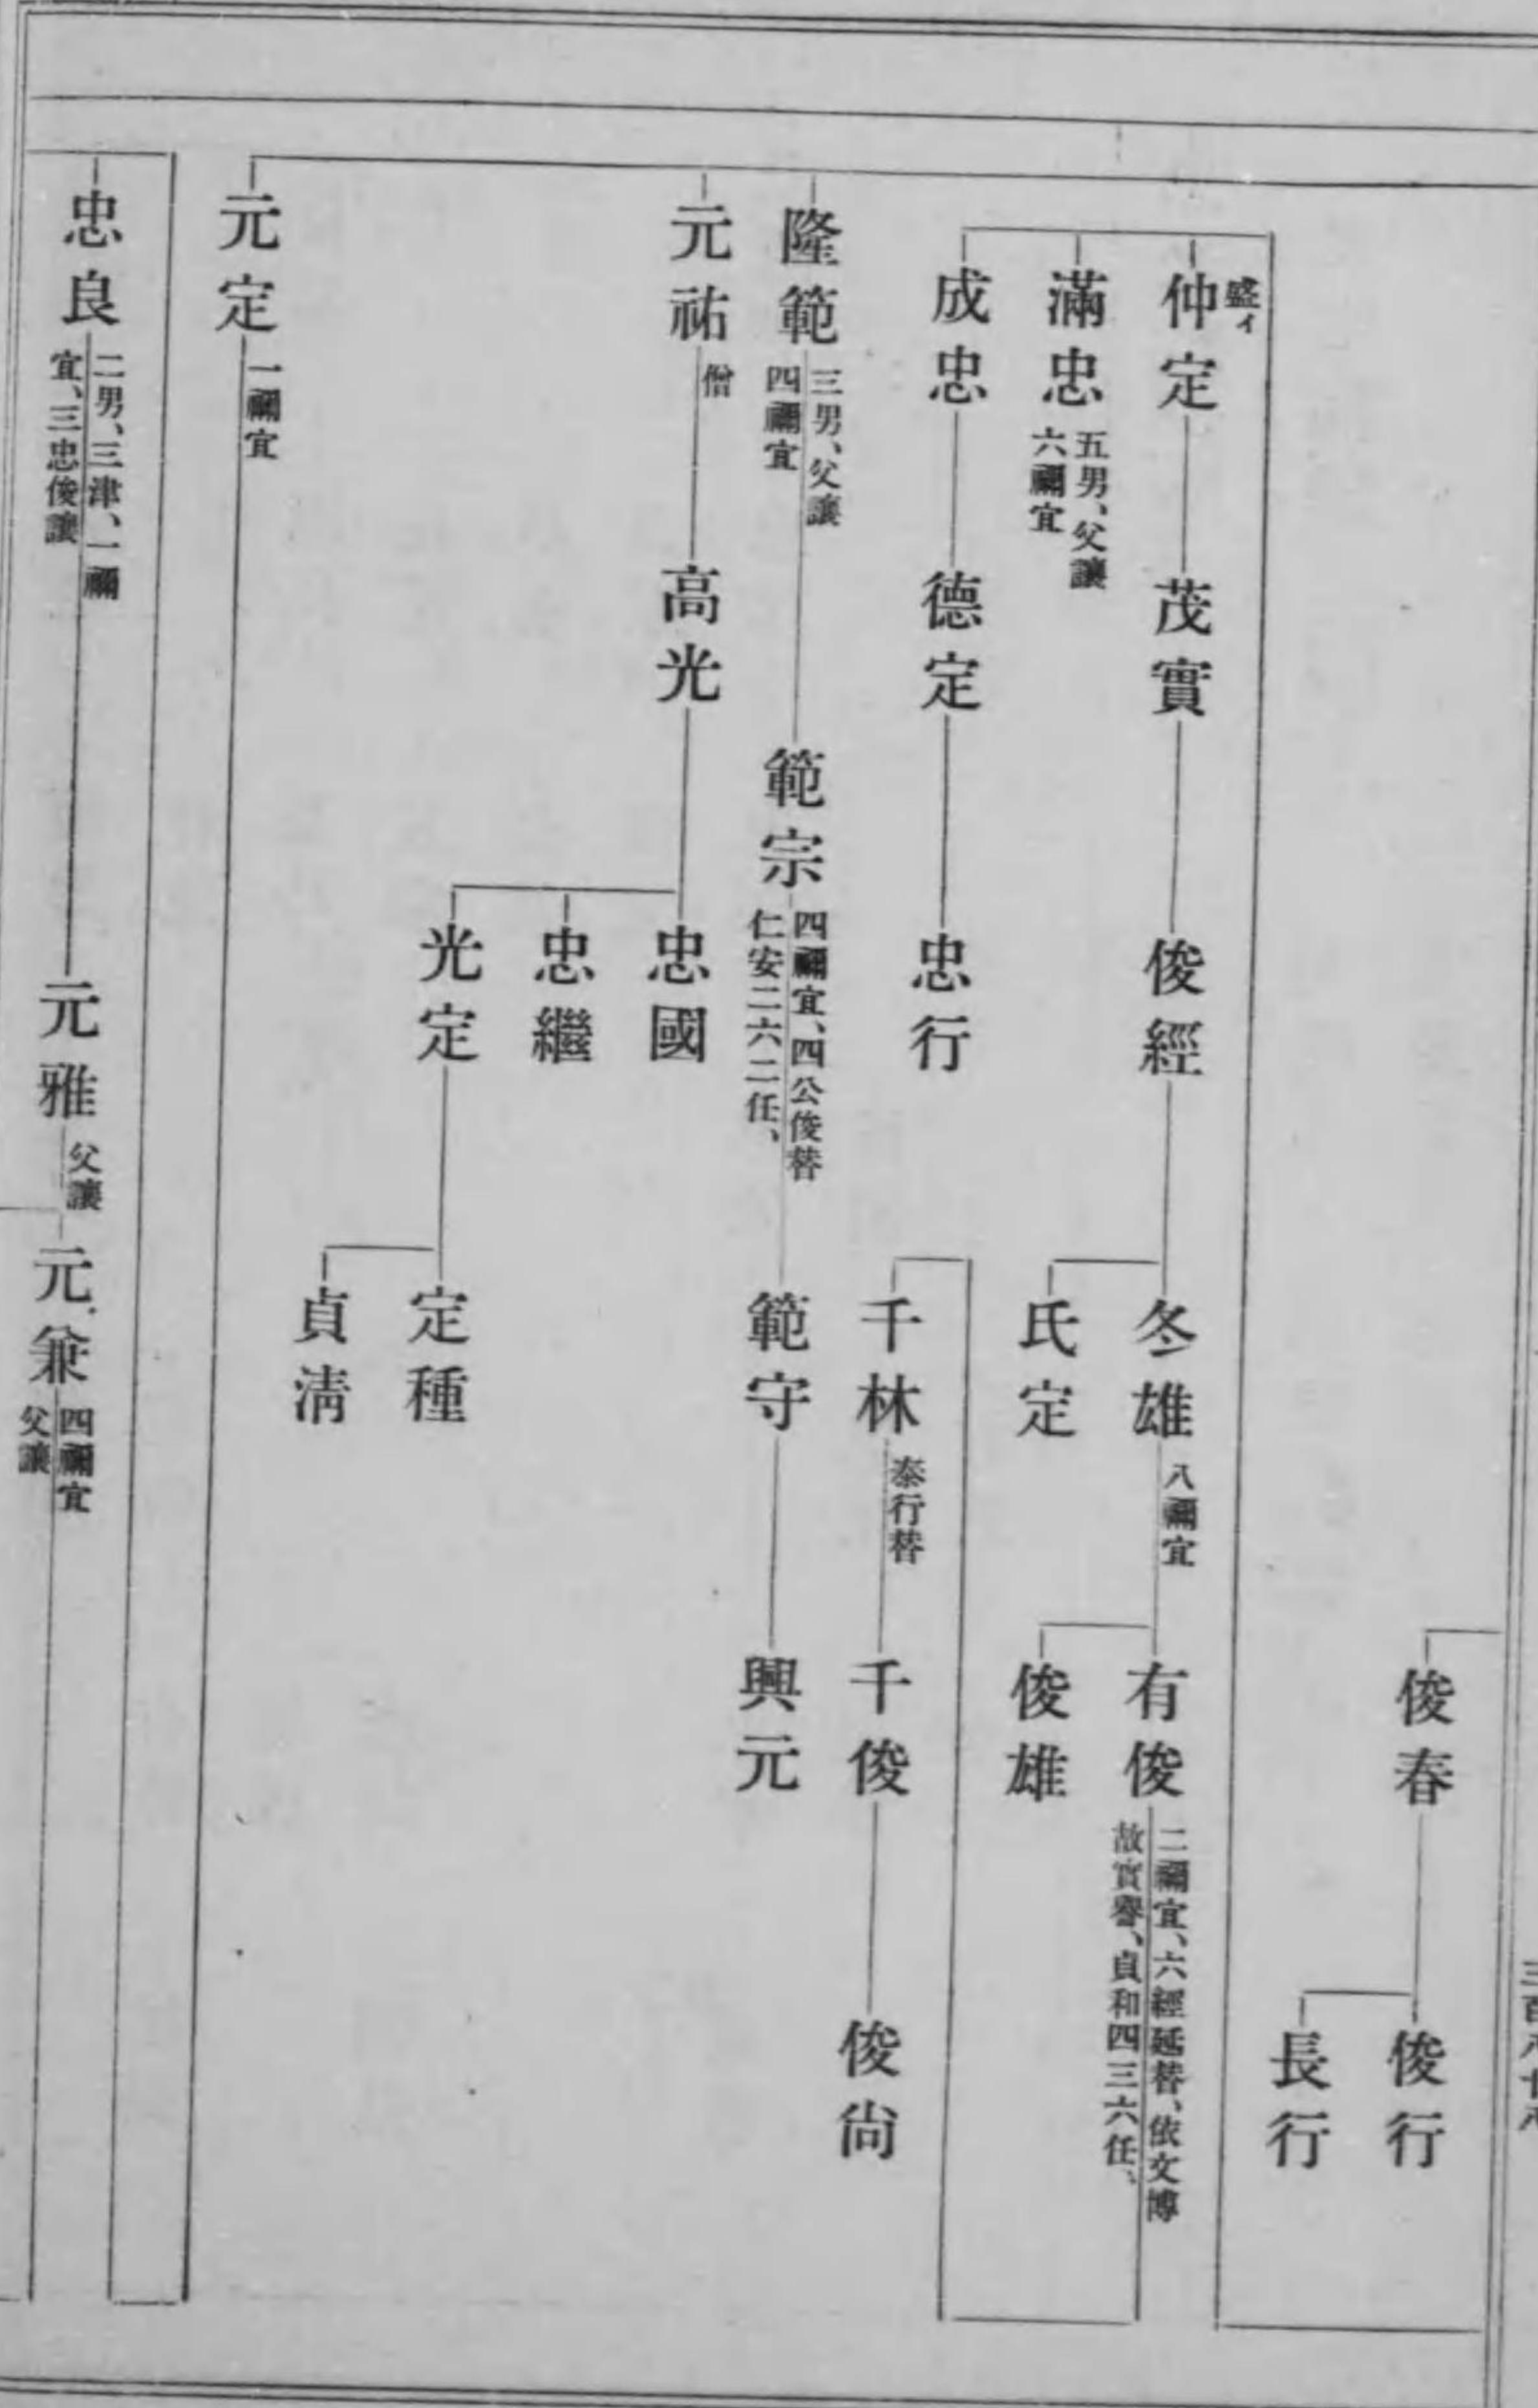 俊春
俊行
長行
仲定
盛イ
茂實
俊經
冬雄
八禰宜
有俊
二禰宜、六經延替、依文博
故實譽、貞和四三六任、
俊雄
氏定
滿忠
五男、父讓
六禰宜
成忠
德定
忠行
千林
泰行替
千俊
俊尙
隆範
三男、父讓
四禰宜
範宗
四禰宜、四公俊替
仁安二六二任、
範守
興元
元祐
僧
高光
忠國
忠繼
光定
定種
貞淸
元定
一禰宜
忠良
二男、三津、一禰
宜、三忠俊讓
元雅
父讓
元兼
四禰宜
父讓